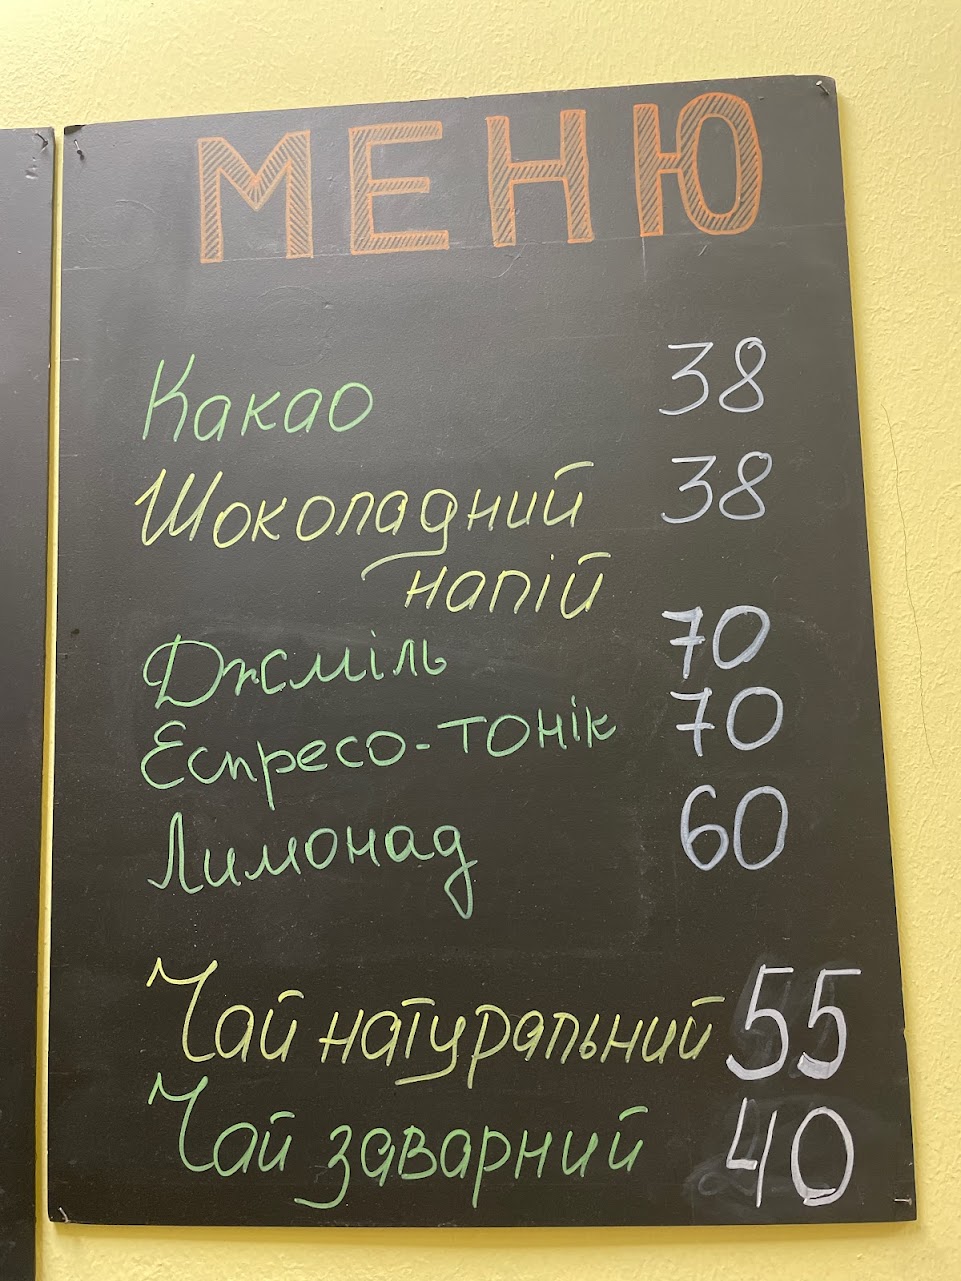 МЕНЮ
Какао 38
Шоколадний 38
напій
Джміль 70
Еспресо-тонік 70
Лимонад 60
Чай натуральний 55
Чай заварний 40